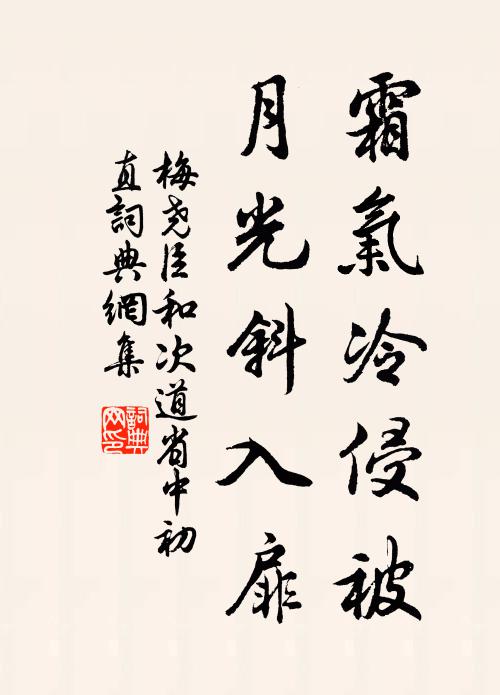 霜氣冷侵被
月光斜入扉
梅堯臣和次道省中初
直詞典網集
詞典
网印